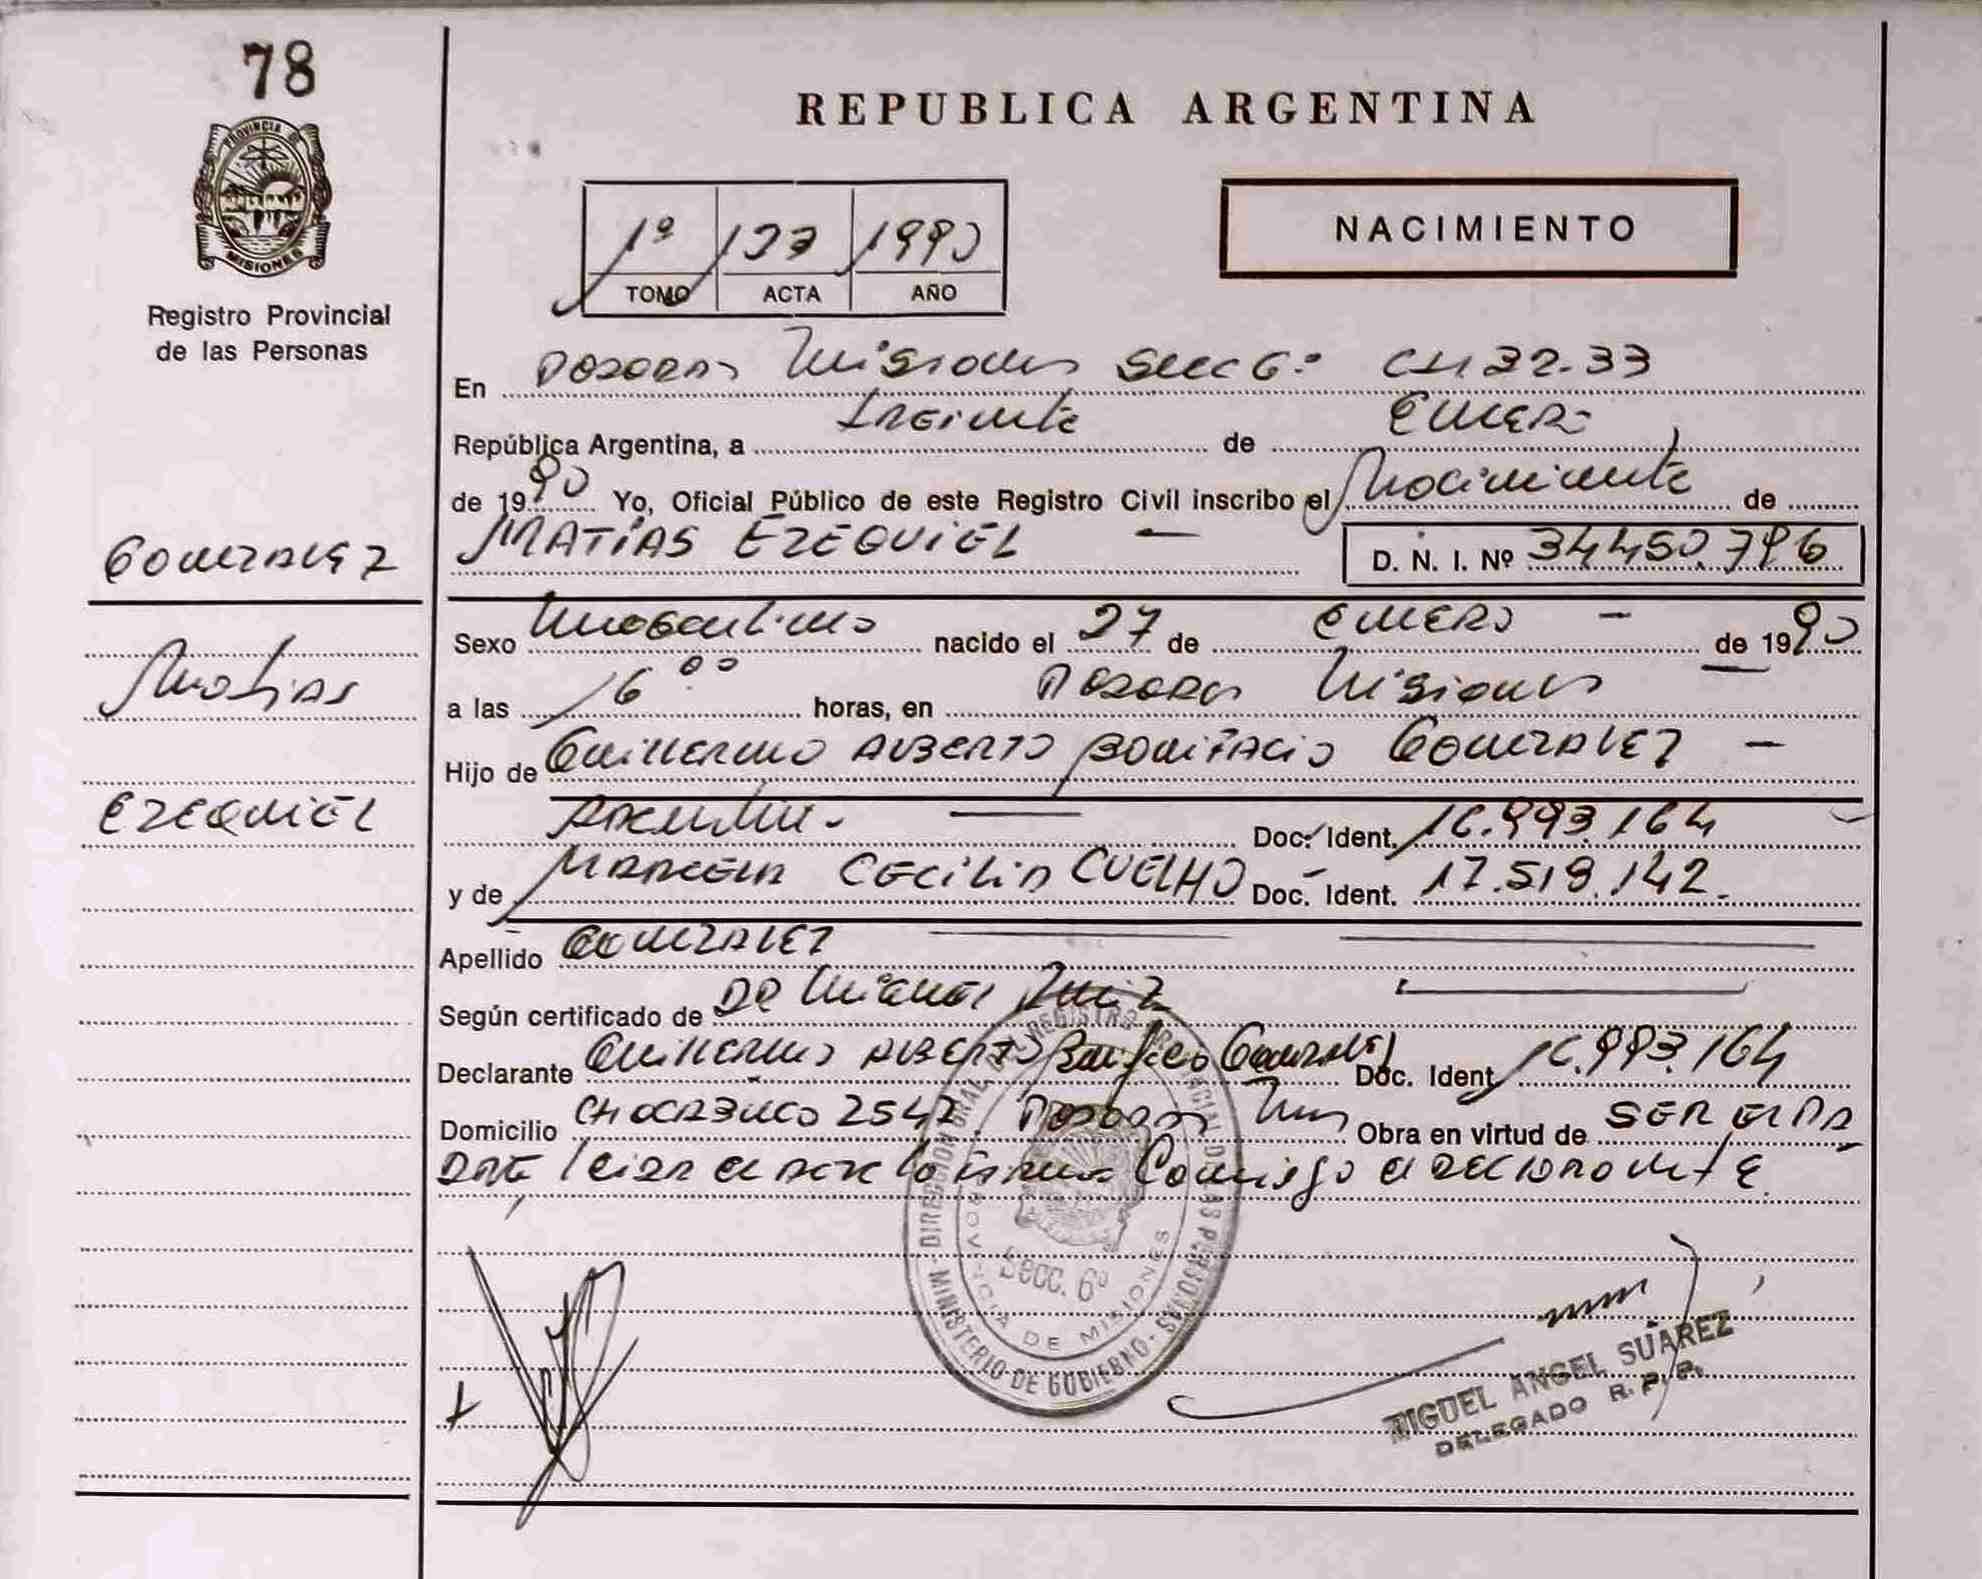 78
PROVINCIA DE
MISIONES
Registro Provincial
de las Personas
REPUBLICA ARGENTINA
NACIMIENTO
1º 1990
TOMO ACTA AÑO
En Posadas Misiones Secc 6º CH 32-33
República Argentina, a treinta de Enero
de 1990 Yo, Oficial Público de este Registro Civil inscribo el Nacimiento de
MATÍAS EZEQUIEL — D. N. I. Nº 34.450.796
GONZALEZ
Matias
EZEQUIEL
Sexo Masculino nacido el 27 de ENERO — de 1990
a las 16 00 horas, en Posadas Misiones
Hijo de Guillermo ALBERTO BONIFACIO GONZALEZ —
Argentino — Doc. Ident. 16.993.164
y de MARCELA CECILIA CUELHO Doc. Ident. 17.519.142.
Apellido GONZALEZ
Según certificado de DR Miguel Ruiz
Declarante Guillermo ALBERTO Bonifacio Gonzalez Doc. Ident. 16.993.164
Domicilio CHACABUCO 2547 Posadas Mnes Obra en virtud de SER EL PA
DRE leida el acta la firma Conmigo el DECLARANTE.
DIRECCION GRAL. DE REGISTRO PROVINCIAL DE LAS PERSONAS
MINISTERIO DE GOBIERNO
PROVINCIA DE MISIONES
Secc. 6º
MIGUEL ANGEL SUAREZ
DELEGADO R. P. P.